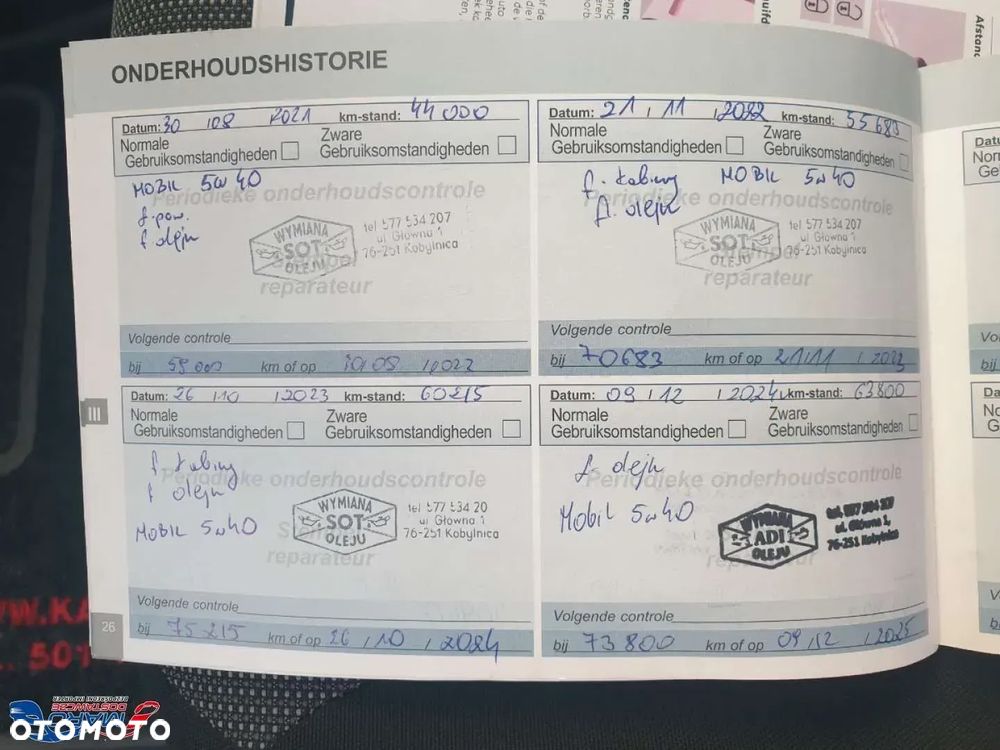 ONDERHOUDSHISTORIE
Datum: 30 08 2021 km-stand: 44 000
Normale Gebruiksomstandigheden
Zware Gebruiksomstandigheden
MOBIL 5W40
Periodieke onderhoudscontrole
f. pow.
f oleju
WYMIANA
SOT
OLEJU
tel 577 534 207
ul Główna 1
76-251 Kobylnica
reparateur
Volgende controle
bij 59 000 km of op
Datum: 21 / 11 / 2022 km-stand: 55 683
Normale Gebruiksomstandigheden
Zware Gebruiksomstandigheden
f. kabiny MOBIL 5W40
Periodieke onderhoudscontrole
fl. oleju
WYMIANA
SOT
OLEJU
tel 577 534 207
ul Główna 1
76-251 Kobylnica
reparateur
Volgende controle
bij 70683 km of op 21/11 / 2023
Datum: 26 / 10 / 2023 km-stand: 60215
Normale Gebruiksomstandigheden
Zware Gebruiksomstandigheden
f kabiny
Periodieke onderhoudscontrole
f oleju
MOBIL 5W40
WYMIANA
SOT
OLEJU
tel 577 534 20
ul Główna 1
76-251 Kobylnica
reparateur
Volgende controle
bij 75215 km of op 26 / 10 / 2024
Datum: 09 / 12 / 2024 km-stand: 63800
Normale Gebruiksomstandigheden
Zware Gebruiksomstandigheden
f. oleju
Periodieke onderhoudscontrole
Mobil 5W40
WYMIANA
ADI
OLEJU
ul. Główna 1,
76-251 Kobylnica
reparateur
Volgende controle
bij 73 800 km of op 09 / 12 / 2025
III
26
OTOMOTO